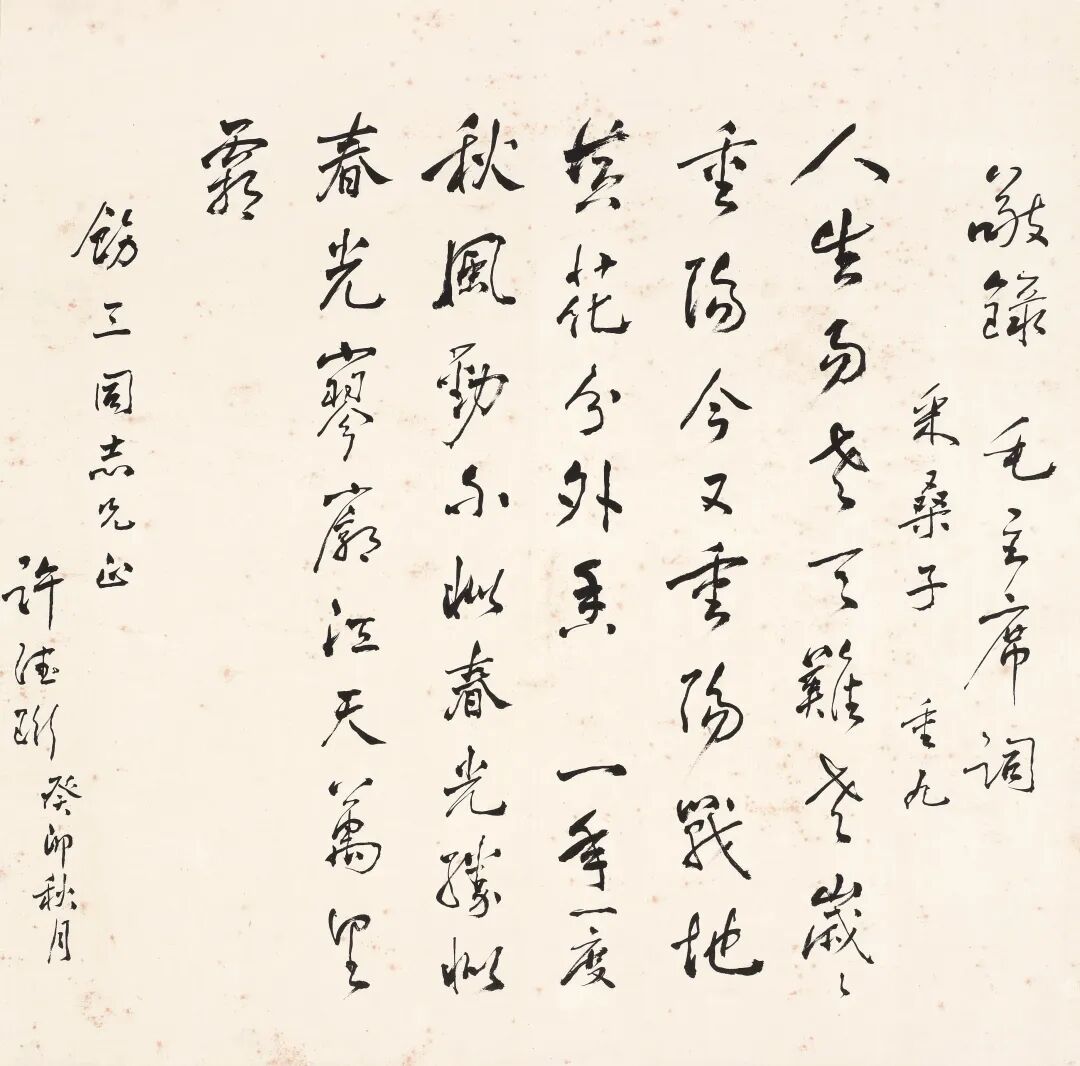 敬錄 毛主席詞
采桑子 重九
人生易老天難老歲〻
重陽今又重陽戰地
黃花分外香 一年一度
秋風勁不似春光勝似
春光寥廓江天萬里
霜
三同志兄正
許德珩 癸卯秋月